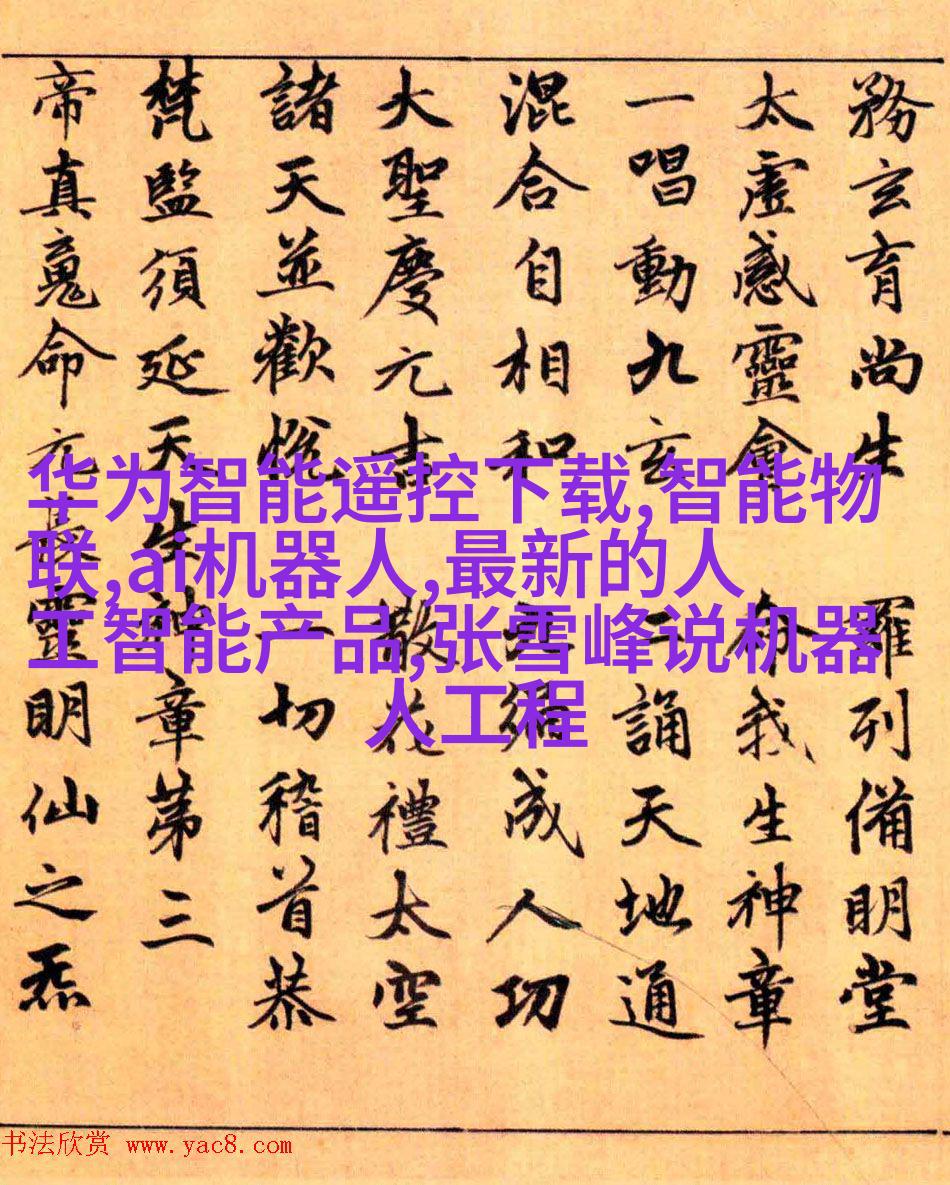 務玄育尚生 羅列備明堂
太虛感靈會 命我生神章
一唱動九玄 二誦天地通
混合自相和 成人功
大聖慶元吉 散花禮太空
諸天並歡悅 一切稽首恭
梵監須延天生神章第三
帝真命元長靈明仙之炁
华为智能遥控下载,智能物
联,ai机器人,最新的人
工智能产品,张雪峰说机器
人工程
书法欣赏 www.yac8.com